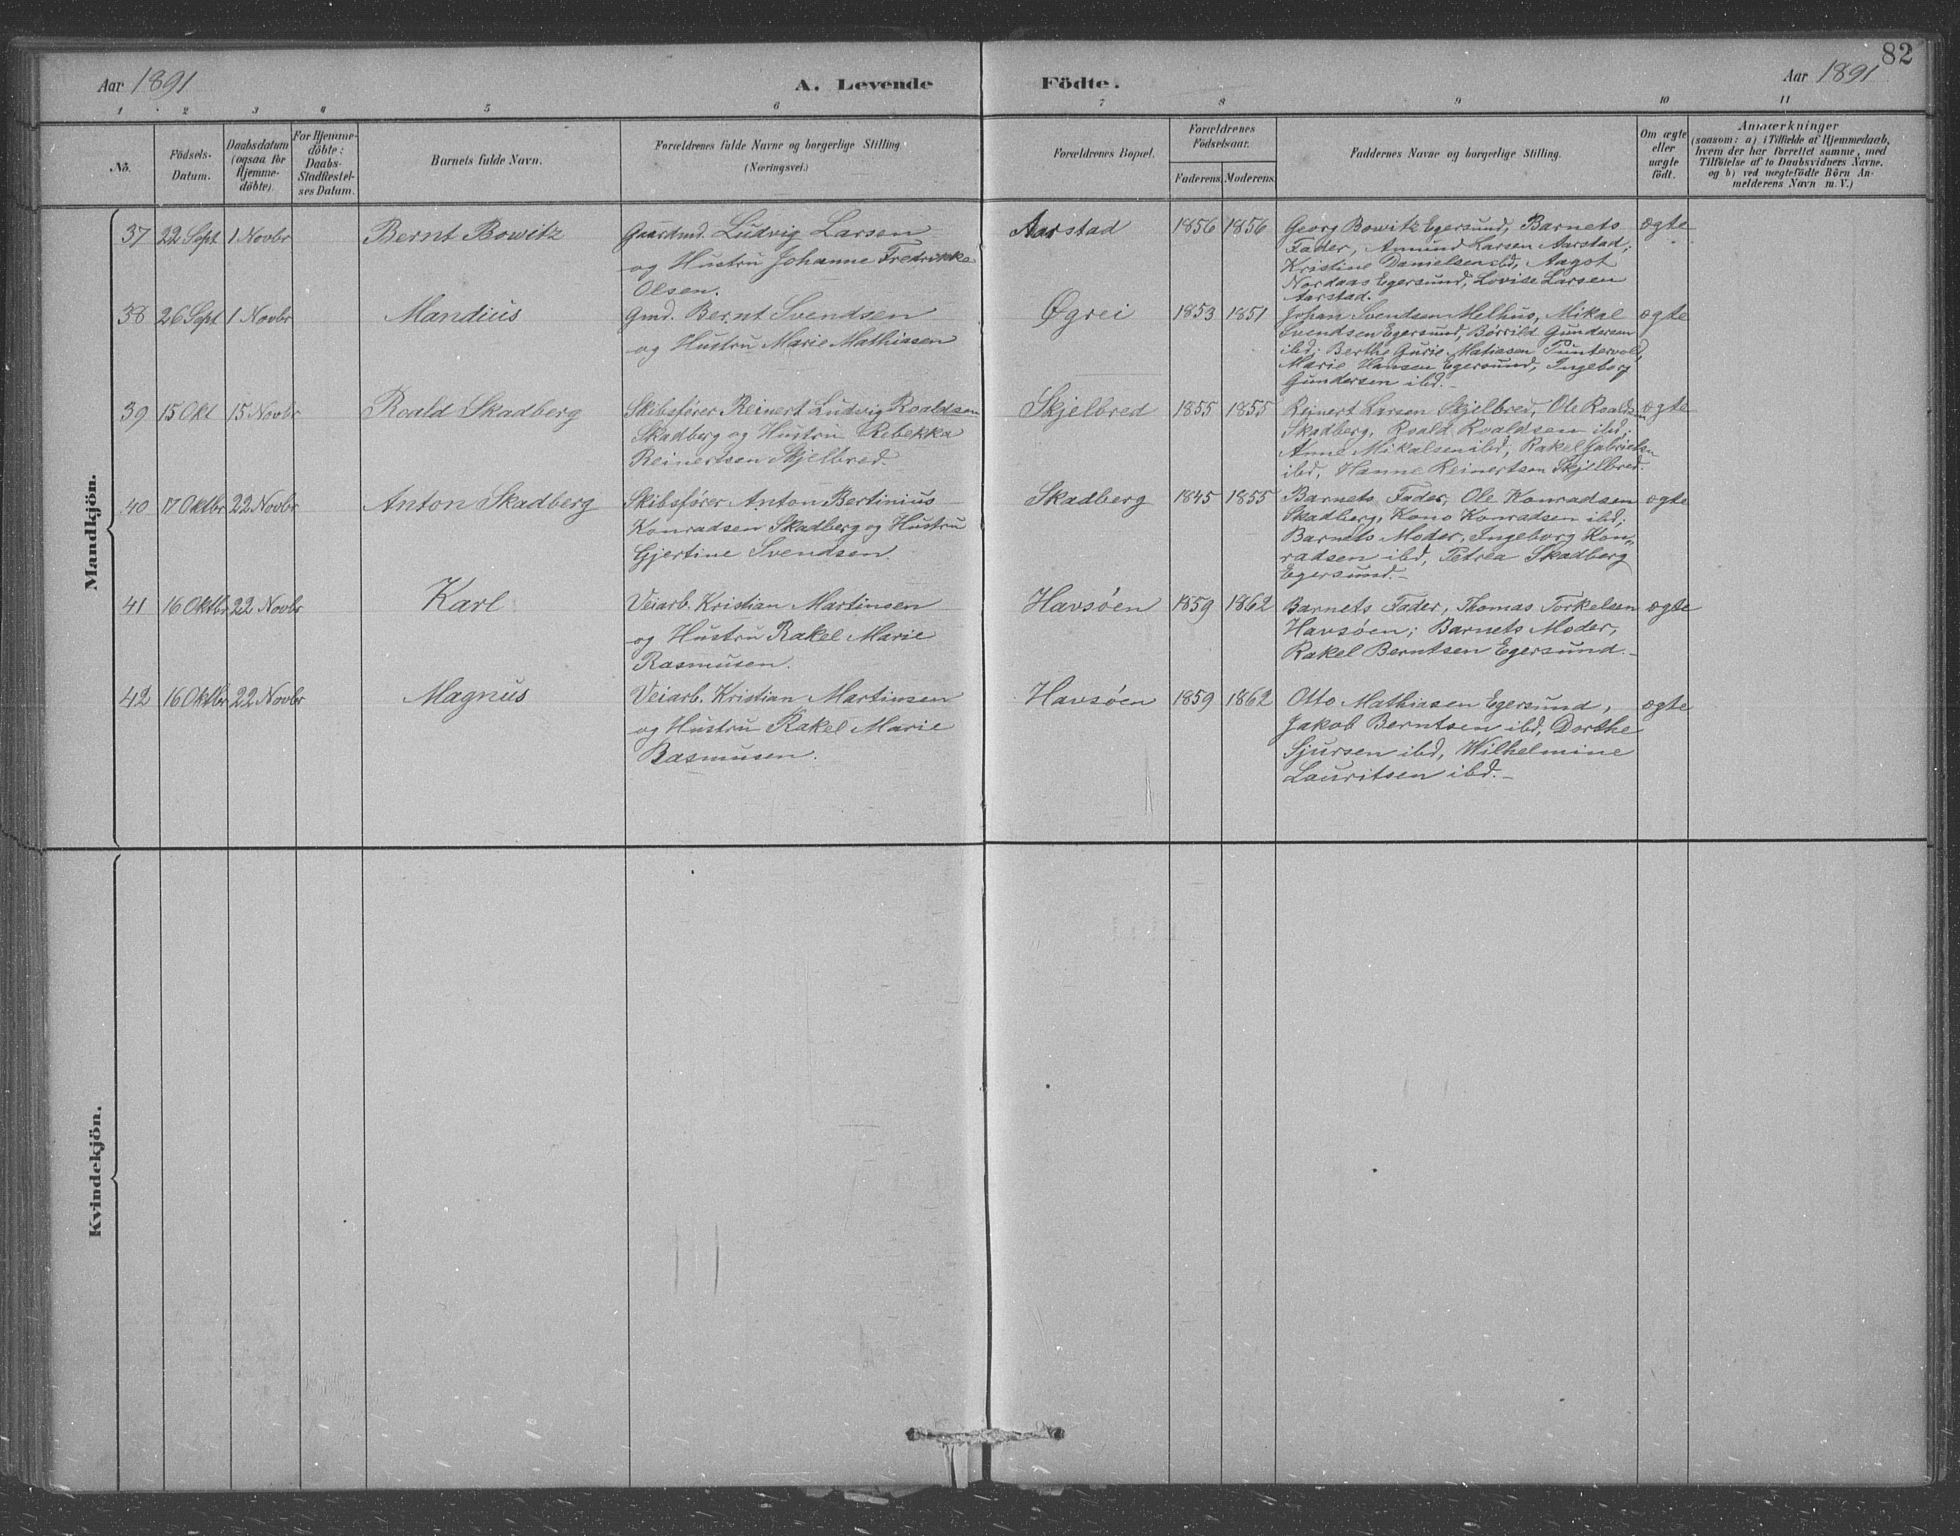 82
Aar 1891
A. Levende
Födte.
Aar 1891
1 2 3 4 5 6 7 8 9 10 11
No.
Födsels-
Datum.
Daabsdatum
(ogsaa for
Hjemme-
döbte).
For Hjemme-
döbte:
Daabs-
Stadfæstel-
ses Datum.
Barnets fulde Navn.
Forældrenes fulde Navne og borgerlige Stilling
(Næringsvei.)
Forældrenes Bopæl.
Forældrenes
Födselsaar.
Faderens.
Moderens.
Faddernes Navne og borgerlige Stilling.
Om ægte
eller
uægte
födt.
Anmærkninger
(saasom: a) i Tilfælde af Hjemmedaab,
hvem der har forrettet samme, med
Tilföielse af to Daabsvidners Navne.
og b) ved uægtefödte Börn An-
melderens Navn m. V.)
Mandkjön.
37 22 Sept 1 Novbr Bernt Bowitz
Gaardmd. Ludvig Larsen
og Hustru Johanne Fredrikke
Olsen.
Aarstad 1856 1856
Georg Bowitz Egersund, Barnets
Fader, Amund Larsen Aarstad;
Kristine Danielsen ibd, Aagot
Nordaas Egersund, Lovise Larsen
Aarstad.
ægte
38 26 Sept 1 Novbr Mandius
Gmd. Bernt Svendsen
og Hustru Marie Mathiasen
Øgrei 1853 1851
Johan Svendsen Melhus, Mikal
Svendsen Egersund, Børrild Gundersen
ibd; Berthe Gurie Matiasen Tuntervold,
Marie Hansen Egersund, Ingeborg
Gundersen ibd.
ægte
39 15 Okt 15 Novbr Roald Skadberg
Skibsfører Reinert Ludvig Roaldsen
Skadberg og Hustru Rebekka
Reinertsen Skjelbred.
Skjelbred 1855 1855
Reinert Larsen Skjelbred, Ole Roaldsen
Skadberg, Roald Roaldsen ibd;
Anne Mikalsen ibd, Rakel Gabrielsen
ibd, Hanne Reinertsen Skjelbred.
ægte
40 17 Oktbr 22 Novbr Anton Skadberg
Skibsfører Anton Bertinius
Konradsen Skadberg og Hustru
Gjertine Svendsen.
Skadberg 1845 1855
Barnets Fader, Ole Konradsen
Skadberg, Kono Konradsen ibd;
Barnets Moder, Ingeborg Kon-
radsen ibd, Petrea Skadberg
Egersund.
ægte
41 16 Oktbr 22 Novbr Karl
Veiarb. Kristian Martinsen
og Hustru Rakel Marie
Rasmusen.
Havsøen 1859 1862
Barnets Fader, Thomas Torkelsen
Havsøen; Barnets Moder,
Rakel Berntsen Egersund.
ægte
42 16 Oktbr 22 Novbr Magnus
Veiarb. Kristian Martinsen
og Hustru Rakel Marie
Rasmusen.
Havsøen 1859 1862
Otto Mathiasen Egersund,
Jakob Berntsen ibd, Dorthe
Sjursen ibd, Wilhelmine
Lauritsen ibd.
ægte
Kvindekjön.